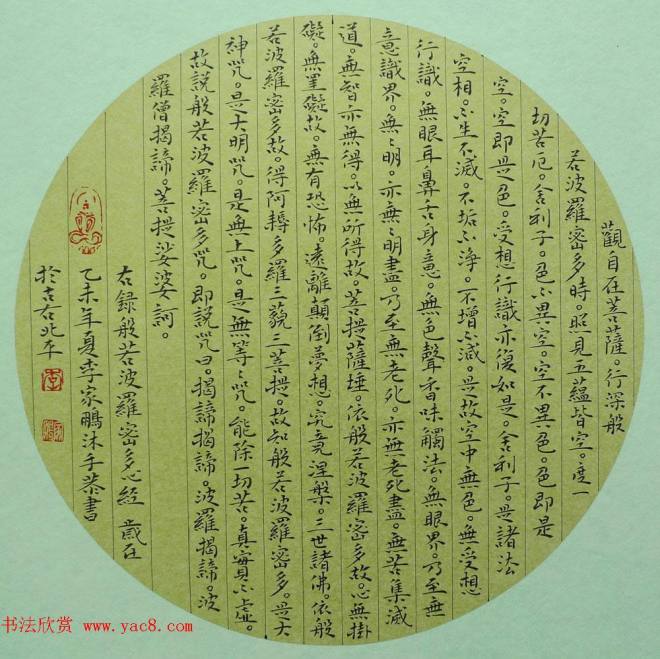 觀自在菩薩。行深般
若波羅密多時。照見五蘊皆空。度一
切苦厄。舍利子。色不異空。空不異色。色即是
空。空即是色。受想行識亦復如是。舍利子。是諸法
空相。不生不滅。不垢不淨。不增不減。是故空中無色。無受想
行識。無眼耳鼻舌身意。無色聲香味觸法。無眼界。乃至無
意識界。無〻明。亦無〻明盡。乃至無老死。亦無老死盡。無苦集滅
道。無智亦無得。以無所得故。菩提薩埵。依般若波羅密多故。心無掛
礙。無罣礙故。無有恐怖。遠離顛倒夢想。究竟涅槃。三世諸佛。依般
若波羅密多故。得阿耨多羅三藐三菩提。故知般若波羅密多。是大
神咒。是大明咒。是無上咒。是無等〻咒。能除一切苦。真實不虛。
故說般若波羅密多咒。即說咒曰。揭諦揭諦。波羅揭諦。波
羅僧揭諦。菩提娑婆訶。
右錄般若波羅密多心經 歲在
乙未年夏李家鵬沐手恭書
於古右北平
李
书法欣赏 www.yac8.com